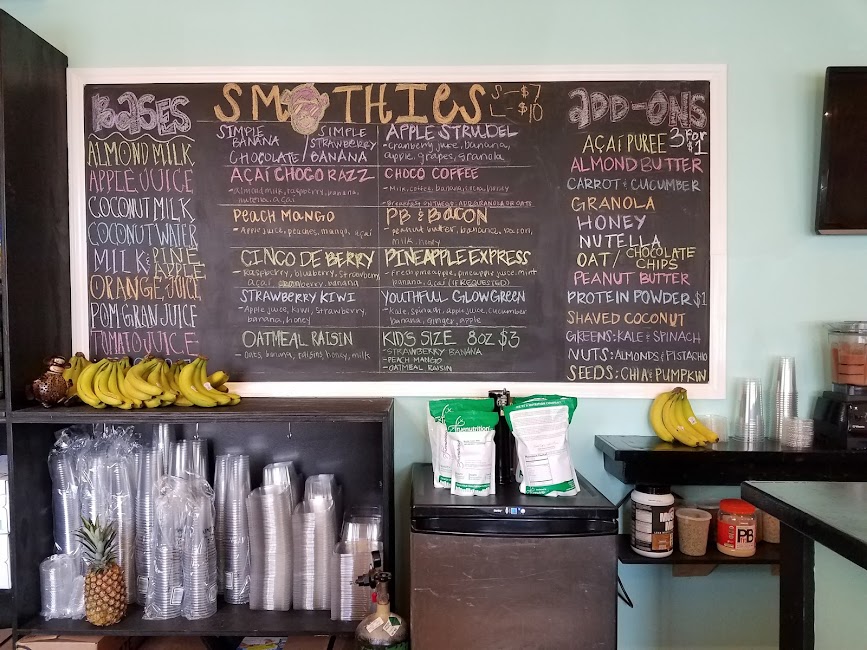 BASES
ALMOND MILK
APPLE JUICE
COCONUT MILK
COCONUT WATER
MILK & PINE
APPLE
ORANGE JUICE
POM GRAN JUICE
TOMATO JUICE
SMOOTHIES S-$7
L-$10
SIMPLE BANANA / SIMPLE STRAWBERRY
CHOCOLATE / BANANA
AÇAÍ CHOCO RAZZ
- almond milk, raspberry, banana,
nutella, açaí
PEACH MANGO
- Apple juice, peaches, mango, açaí
CINCO DE BERRY
- Raspberry, blueberry, strawberry
açaí, banana
STRAWBERRY KIWI
- Apple juice, kiwi, strawberry,
banana, honey
OATMEAL RAISIN
- Oats, banana, raisins, honey, milk
APPLE STRUDEL
- cranberry juice, banana,
apple, grapes, granola
CHOCO COFFEE
- Milk, coffee, banana, honey
ADD GRANOLA OR OATS
PB & BACON
- peanut butter, banana, bacon,
milk, honey
PINEAPPLE EXPRESS
- Fresh pineapple, pineapple juice, mint
banana, açaí (IF REQUESTED)
YOUTHFUL GLOW GREEN
- Kale, spinach, apple juice, cucumber
banana, ginger, apple
KID'S SIZE 8oz $3
- STRAWBERRY BANANA
- PEACH MANGO
- OATMEAL RAISIN
ADD-ONS
AÇAÍ PUREE 3 FOR $1
ALMOND BUTTER
CARROT & CUCUMBER
GRANOLA
HONEY
NUTELLA
OAT / CHOCOLATE CHIPS
PEANUT BUTTER
PROTEIN POWDER $1
SHAVED COCONUT
GREENS: KALE & SPINACH
NUTS: ALMONDS & PISTACHIO
SEEDS: CHIA & PUMPKIN
truenutrition
PB